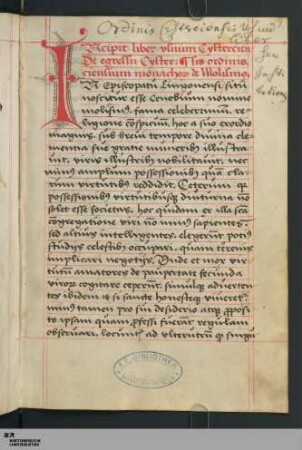 Ordinis Cisterciensis
INcipit liber vsuum Cystercien
De egressu Cyster: ordinis
cienssium monachorum de Molismo.
IN Episcopatu Lingonensi situ
noscitur esse cenobium nomine
molismus, fama celeberrimum, re-
ligione conspicuum. hoc a sui exordio
magnis, sub breui tempore diuina cle
mentia sue gratie muneribus illustra
uit, viris illustribus nobilitauit, nec
minus amplum possessionibus quam cla
rum virtutibus reddidit. Ceterum quia
possessionibus virtutibusque diuturna non
solet esse societas, hoc quidam ex illa sancta
congregatione viri nimirum sapientes,
sed altius intelligentes, elegerunt potius
studijs celestibus occupari, quam terrenis
implicari negotijs. Unde et mox vir
tutum amatores de paupertate fecunda
virorum cogitare ceperunt. simulque aduerten
tes ibidem et si sancte honesteque viueretur
minus tamen pro sui desiderio atque proposito
ipsam quam professi fuerant regulam
obseruari. locuntur ad alterutrum quod singu
BIBLIOTHEK